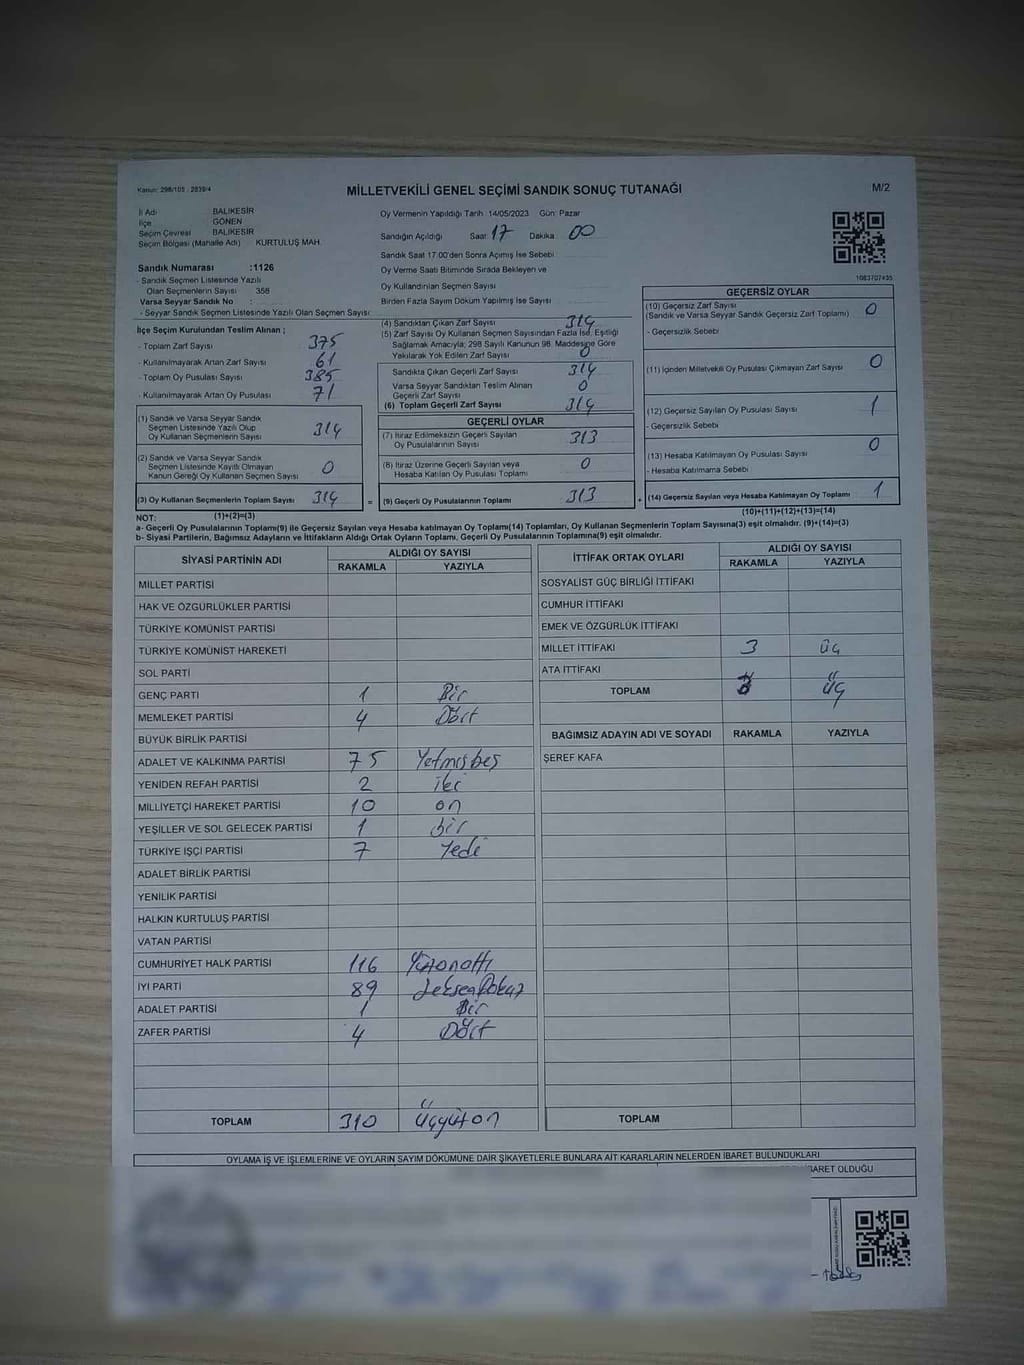 Kanun: 298/105 - 2839/4
MİLLETVEKİLİ GENEL SEÇİMİ SANDIK SONUÇ TUTANAĞI
M/2
İl Adı BALIKESİR
İlçe GÖNEN
Seçim Çevresi BALIKESİR
Seçim Bölgesi (Mahalle Adı) KURTULUŞ MAH.
Sandık Numarası :1126
- Sandık Seçmen Listesinde Yazılı
Olan Seçmenlerin Sayısı 358
Varsa Seyyar Sandık No :
- Seyyar Sandık Seçmen Listesinde Yazılı Olan Seçmen Sayısı
Oy Vermenin Yapıldığı Tarih :14/05/2023 Gün: Pazar
Sandığın Açıldığı Saat 17 Dakika 00
Sandık Saat 17:00'den Sonra Açımış İse Sebebi
Oy Verme Saati Bitiminde Sırada Bekleyen ve
Oy Kullandırılan Seçmen Sayısı
Birden Fazla Sayım Döküm Yapılmış İse Sayısı
1083707435
İlçe Seçim Kurulundan Teslim Alınan ;
- Toplam Zarf Sayısı 375
- Kullanılmayarak Artan Zarf Sayısı 61
- Toplam Oy Pusulası Sayısı 385
- Kullanılmayarak Artan Oy Pusulası 71
(1) Sandık ve Varsa Seyyar Sandık
Seçmen Listesinde Yazılı Olup
Oy Kullanan Seçmenlerin Sayısı 314
(2) Sandık ve Varsa Seyyar Sandık
Seçmen Listesinde Kayıtlı Olmayan
Kanun Gereği Oy Kullanan Seçmen Sayısı 0
(3) Oy Kullanan Seçmenlerin Toplam Sayısı 314 =
(1)+(2)=(3)
(4) Sandıktan Çıkan Zarf Sayısı 314
(5) Zarf Sayısı Oy Kullanan Seçmen Sayısından Fazla İse, Eşitliği
Sağlamak Amacıyla; 298 Sayılı Kanunun 98. Maddesine Göre
Yakılarak Yok Edilen Zarf Sayısı 0
Sandıkta Çıkan Geçerli Zarf Sayısı 314
Varsa Seyyar Sandıktan Teslim Alınan
Geçerli Zarf Sayısı 0
(6) Toplam Geçerli Zarf Sayısı 314
GEÇERLİ OYLAR
(7) İtiraz Edilmeksizin Geçerli Sayılan
Oy Pusulalarının Sayısı 313
(8) İtiraz Üzerine Geçerli Sayılan veya
Hesaba Katılan Oy Pusulası Toplamı 0
(9) Geçerli Oy Pusulalarının Toplamı 313 +
GEÇERSİZ OYLAR
(10) Geçersiz Zarf Sayısı
(Sandık ve Varsa Seyyar Sandık Geçersiz Zarf Toplamı) 0
- Geçersizlik Sebebi
(11) İçinden Milletvekili Oy Pusulası Çıkmayan Zarf Sayısı 0
(12) Geçersiz Sayılan Oy Pusulası Sayısı 1
- Geçersizlik Sebebi
(13) Hesaba Katılmayan Oy Pusulası Sayısı 0
- Hesaba Katılmama Sebebi
(14) Geçersiz Sayılan veya Hesaba Katılmayan Oy Toplamı 1
(10)+(11)+(12)+(13)=(14)
NOT:
a- Geçerli Oy Pusulalarının Toplamı(9) ile Geçersiz Sayılan veya Hesaba katılmayan Oy Toplam(14) Toplamları, Oy Kullanan Seçmenlerin Toplam Sayısına(3) eşit olmalıdır. (9)+(14)=(3)
b- Siyasi Partilerin, Bağımsız Adayların ve İttifakların Aldığı Ortak Oyların Toplamı, Geçerli Oy Pusulalarının Toplamına(9) eşit olmalıdır.
SİYASİ PARTİNİN ADI ALDIĞI OY SAYISI
RAKAMLA YAZIYLA
MİLLET PARTİSİ
HAK VE ÖZGÜRLÜKLER PARTİSİ
TÜRKİYE KOMÜNİST PARTİSİ
TÜRKİYE KOMÜNİST HAREKETİ
SOL PARTİ
GENÇ PARTİ 1 Bir
MEMLEKET PARTİSİ 4 Dört
BÜYÜK BİRLİK PARTİSİ
ADALET VE KALKINMA PARTİSİ 75 Yetmişbeş
YENİDEN REFAH PARTİSİ 2 iki
MİLLİYETÇİ HAREKET PARTİSİ 10 on
YEŞİLLER VE SOL GELECEK PARTİSİ 1 bir
TÜRKİYE İŞÇİ PARTİSİ 7 Yedi
ADALET BİRLİK PARTİSİ
YENİLİK PARTİSİ
HALKIN KURTULUŞ PARTİSİ
VATAN PARTİSİ
CUMHURİYET HALK PARTİSİ 116 Yüzonaltı
İYİ PARTİ 89 Seksendokuz
ADALET PARTİSİ 1 Bir
ZAFER PARTİSİ 4 Dört
TOPLAM 310 Üçyüzon
İTTİFAK ORTAK OYLARI ALDIĞI OY SAYISI
RAKAMLA YAZIYLA
SOSYALİST GÜÇ BİRLİĞİ İTTİFAKI
CUMHUR İTTİFAKI
EMEK VE ÖZGÜRLÜK İTTİFAKI
MİLLET İTTİFAKI 3 üç
ATA İTTİFAKI
TOPLAM 3 üç
BAĞIMSIZ ADAYIN ADI VE SOYADI RAKAMLA YAZIYLA
ŞEREF KAFA
TOPLAM
OYLAMA İŞ VE İŞLEMLERİNE VE OYLARIN SAYIM DÖKÜMÜNE DAİR ŞİKAYETLERLE BUNLARA AİT KARARLARIN NELERDEN İBARET BULUNDUKLARI
İBARET OLDUĞU